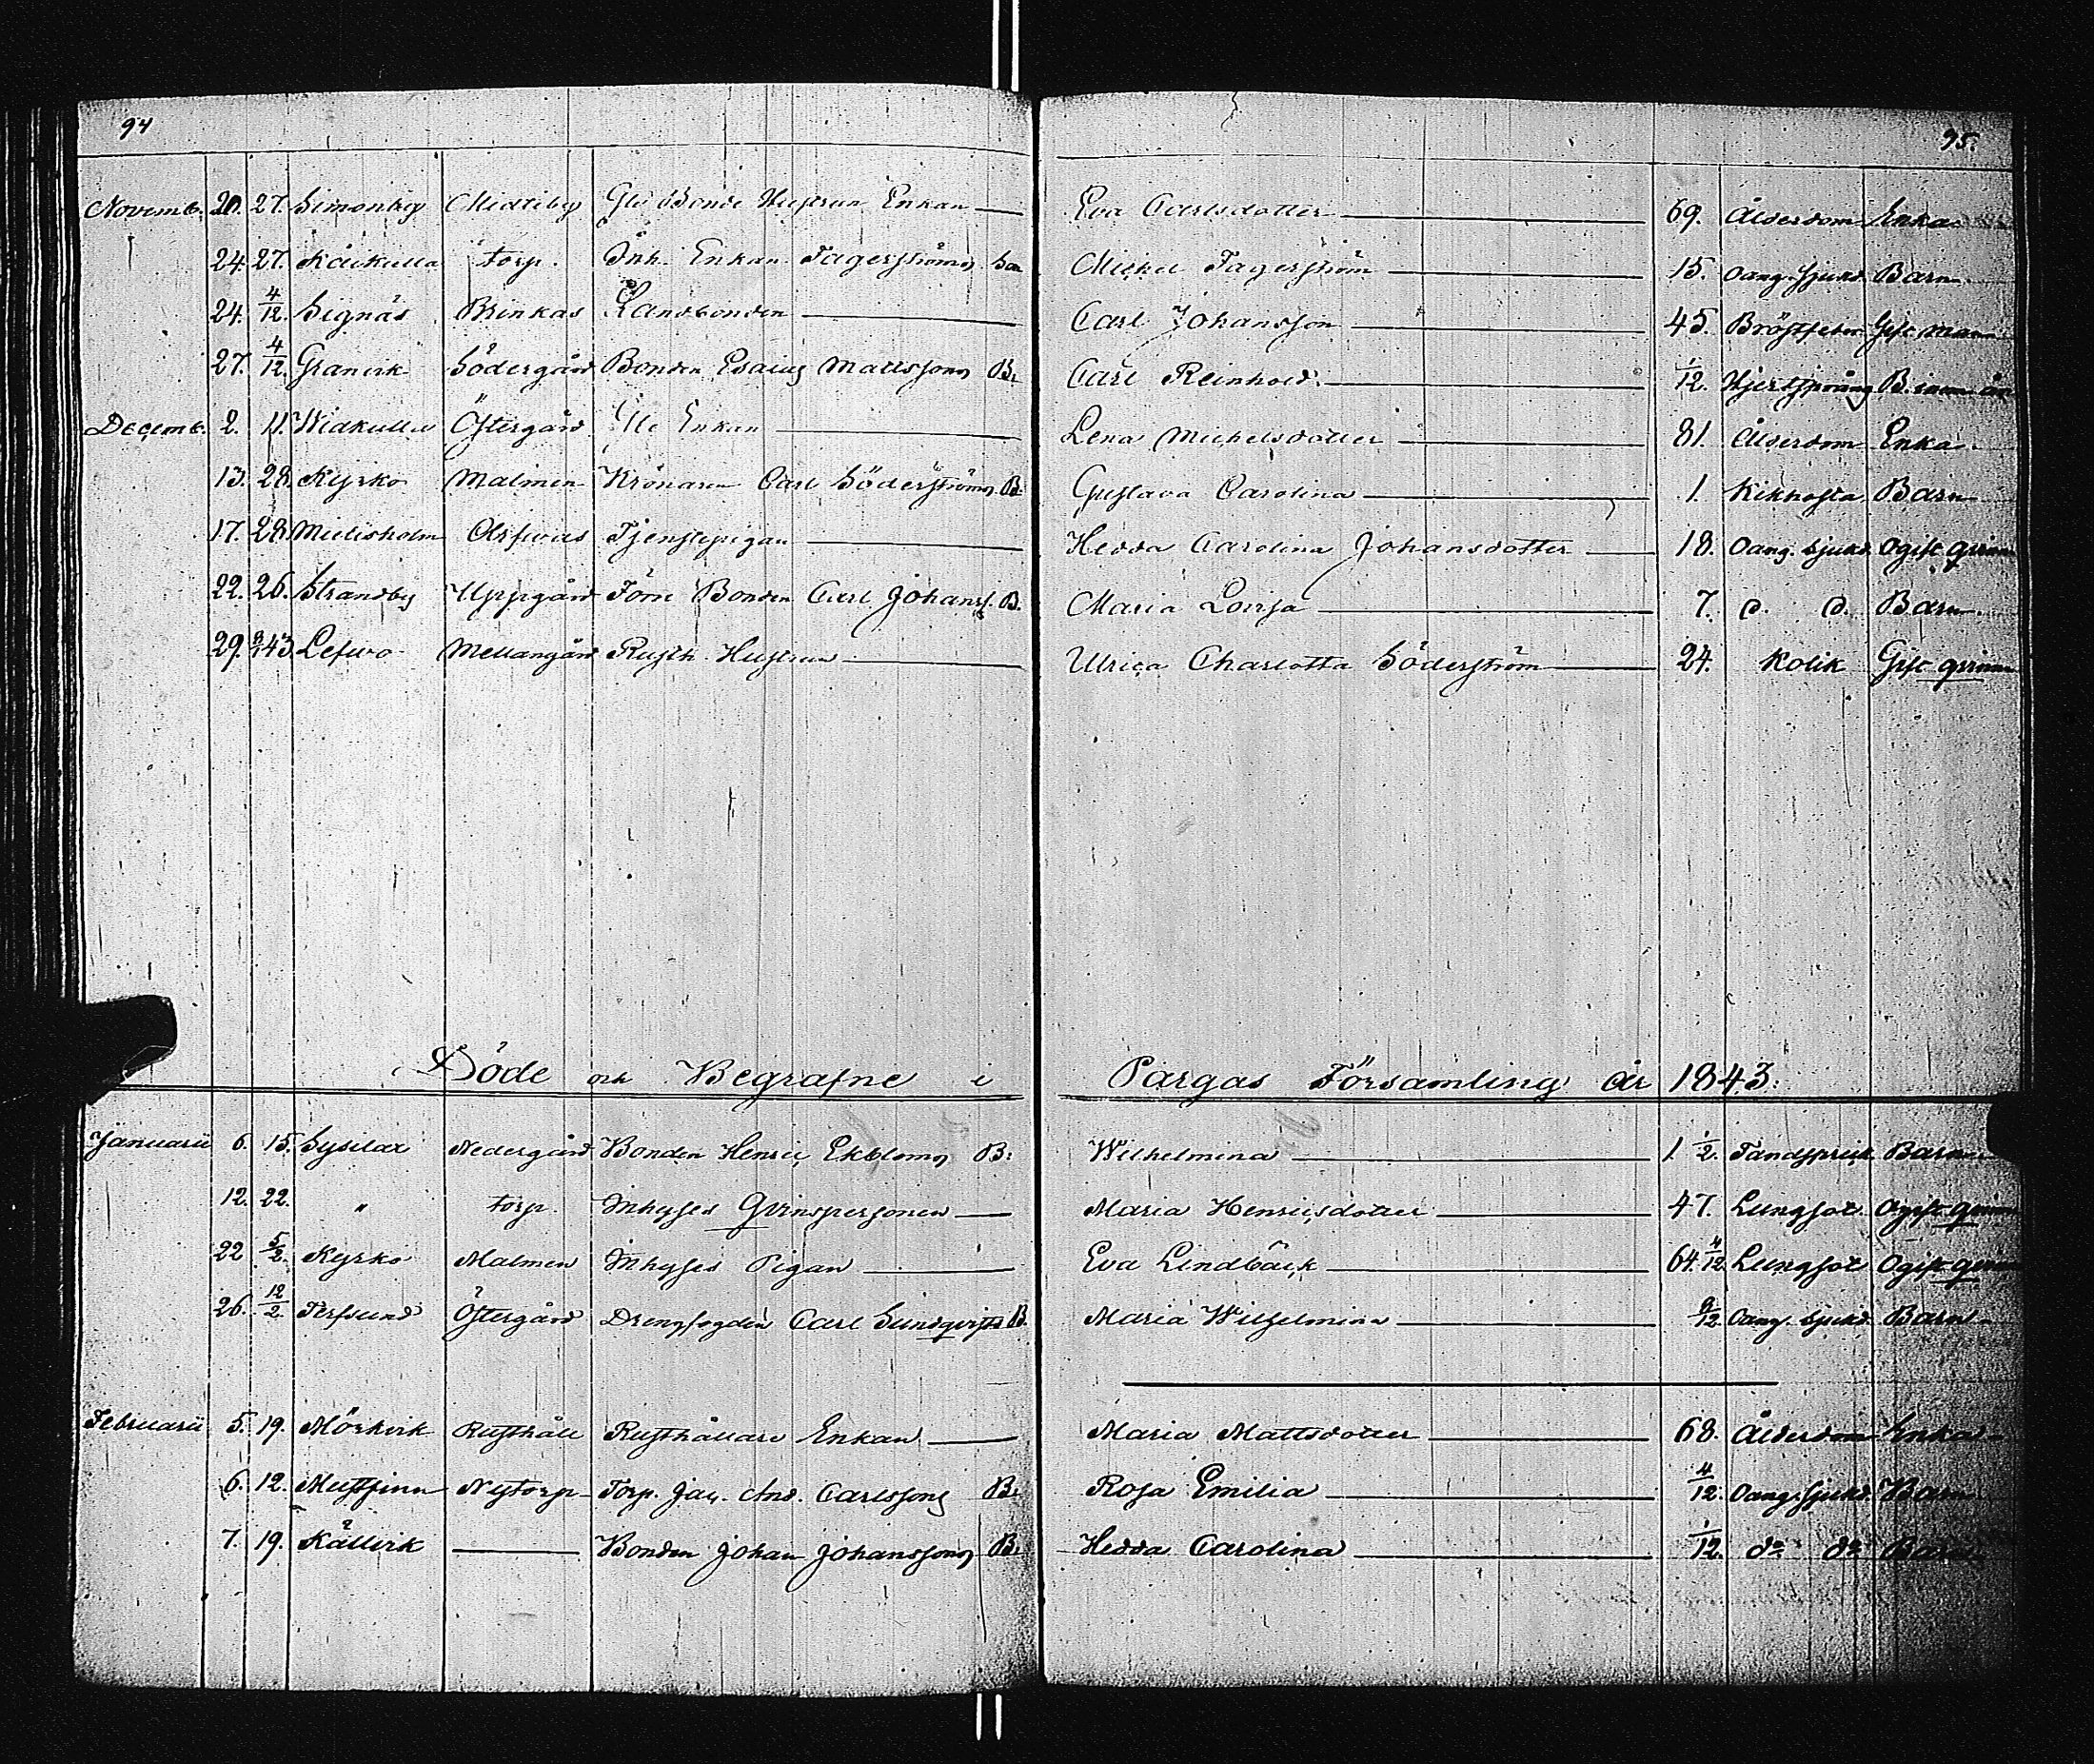 94
95.
Novemb. 20. 27. Simonby Midtiby Gle Bonde Hustrun Enkan Eva Carlsdotter 69. Ålderdom Enka
24. 27. Kåikulla torp. Inh. Enkan Fagerströms Son Michel Fagerström 15. Oang. Sjukd. Barn
24. 4/12. Signäs Brinkas Landbonden Carl Johansson 45. Bröstfeber Gift man
27. 4/12. Granvik Södergård Bonden Esaias Mattssons B. Carl Reinhold. 1/12. Hjertsprång B. inom år
Decemb. 2. 11. Widkulla Östergård Gle Enkan Lena Michelsdotter 81. Ålderdom Enka
13. 28. Kyrko Malmen Krönaren Carl Söderströms B. Gustava Carolina 1. Kikhosta Barn
17. 28. Mielisholm Tjenstepigan Hedda Carolina Johansdotter 18. Oang. Sjukd. Ogift qvinn
22. 26. Strandby Uppgård Förre Bonden Carl Johanss. B. Maria Lovisa 7. d. d. Barn
29. 8/1 43 Lefwo Mellangård Rusth. Hustrun Ulrica Charlotta Söderström 24. Kolik Gift qvinn
Döde och Begrafne i Pargas Församling år 1843.
Januarii 6. 15. Sysilax Nedergård Bonden Henric Ekbloms B. Wilhelmina 1 1/2. Tandsprick Barn
12. 22. " torp. Inhyses Qvinspersonen Maria Henricsdotter 47. Lungsot Ogift qvinn
22 5/2. Kyrko Malmen Inhyses Pigan Eva Lindbäck 64. 4/12 Lungsot Ogift qvinn
26. 12/2. Terfsund Östergård Drengfogden Carl Sundqvists B. Maria Wilhelmina 9/12 Oang. Sjukd. Barn
Februarii 5. 19. Mörkvik Rusthåll Rusthållare Enkan Maria Mattsdotter 68. Ålderdom Enka
6. 12. Mustfinn Nytorp Torp. Jac. And. Carlssons B. Rosa Emilia 4/12. Oang. Sjukd. Barn
7. 19. Kållvik Bonden Johan Johanssons B. Hedda Carolina 1/12. do do Barn